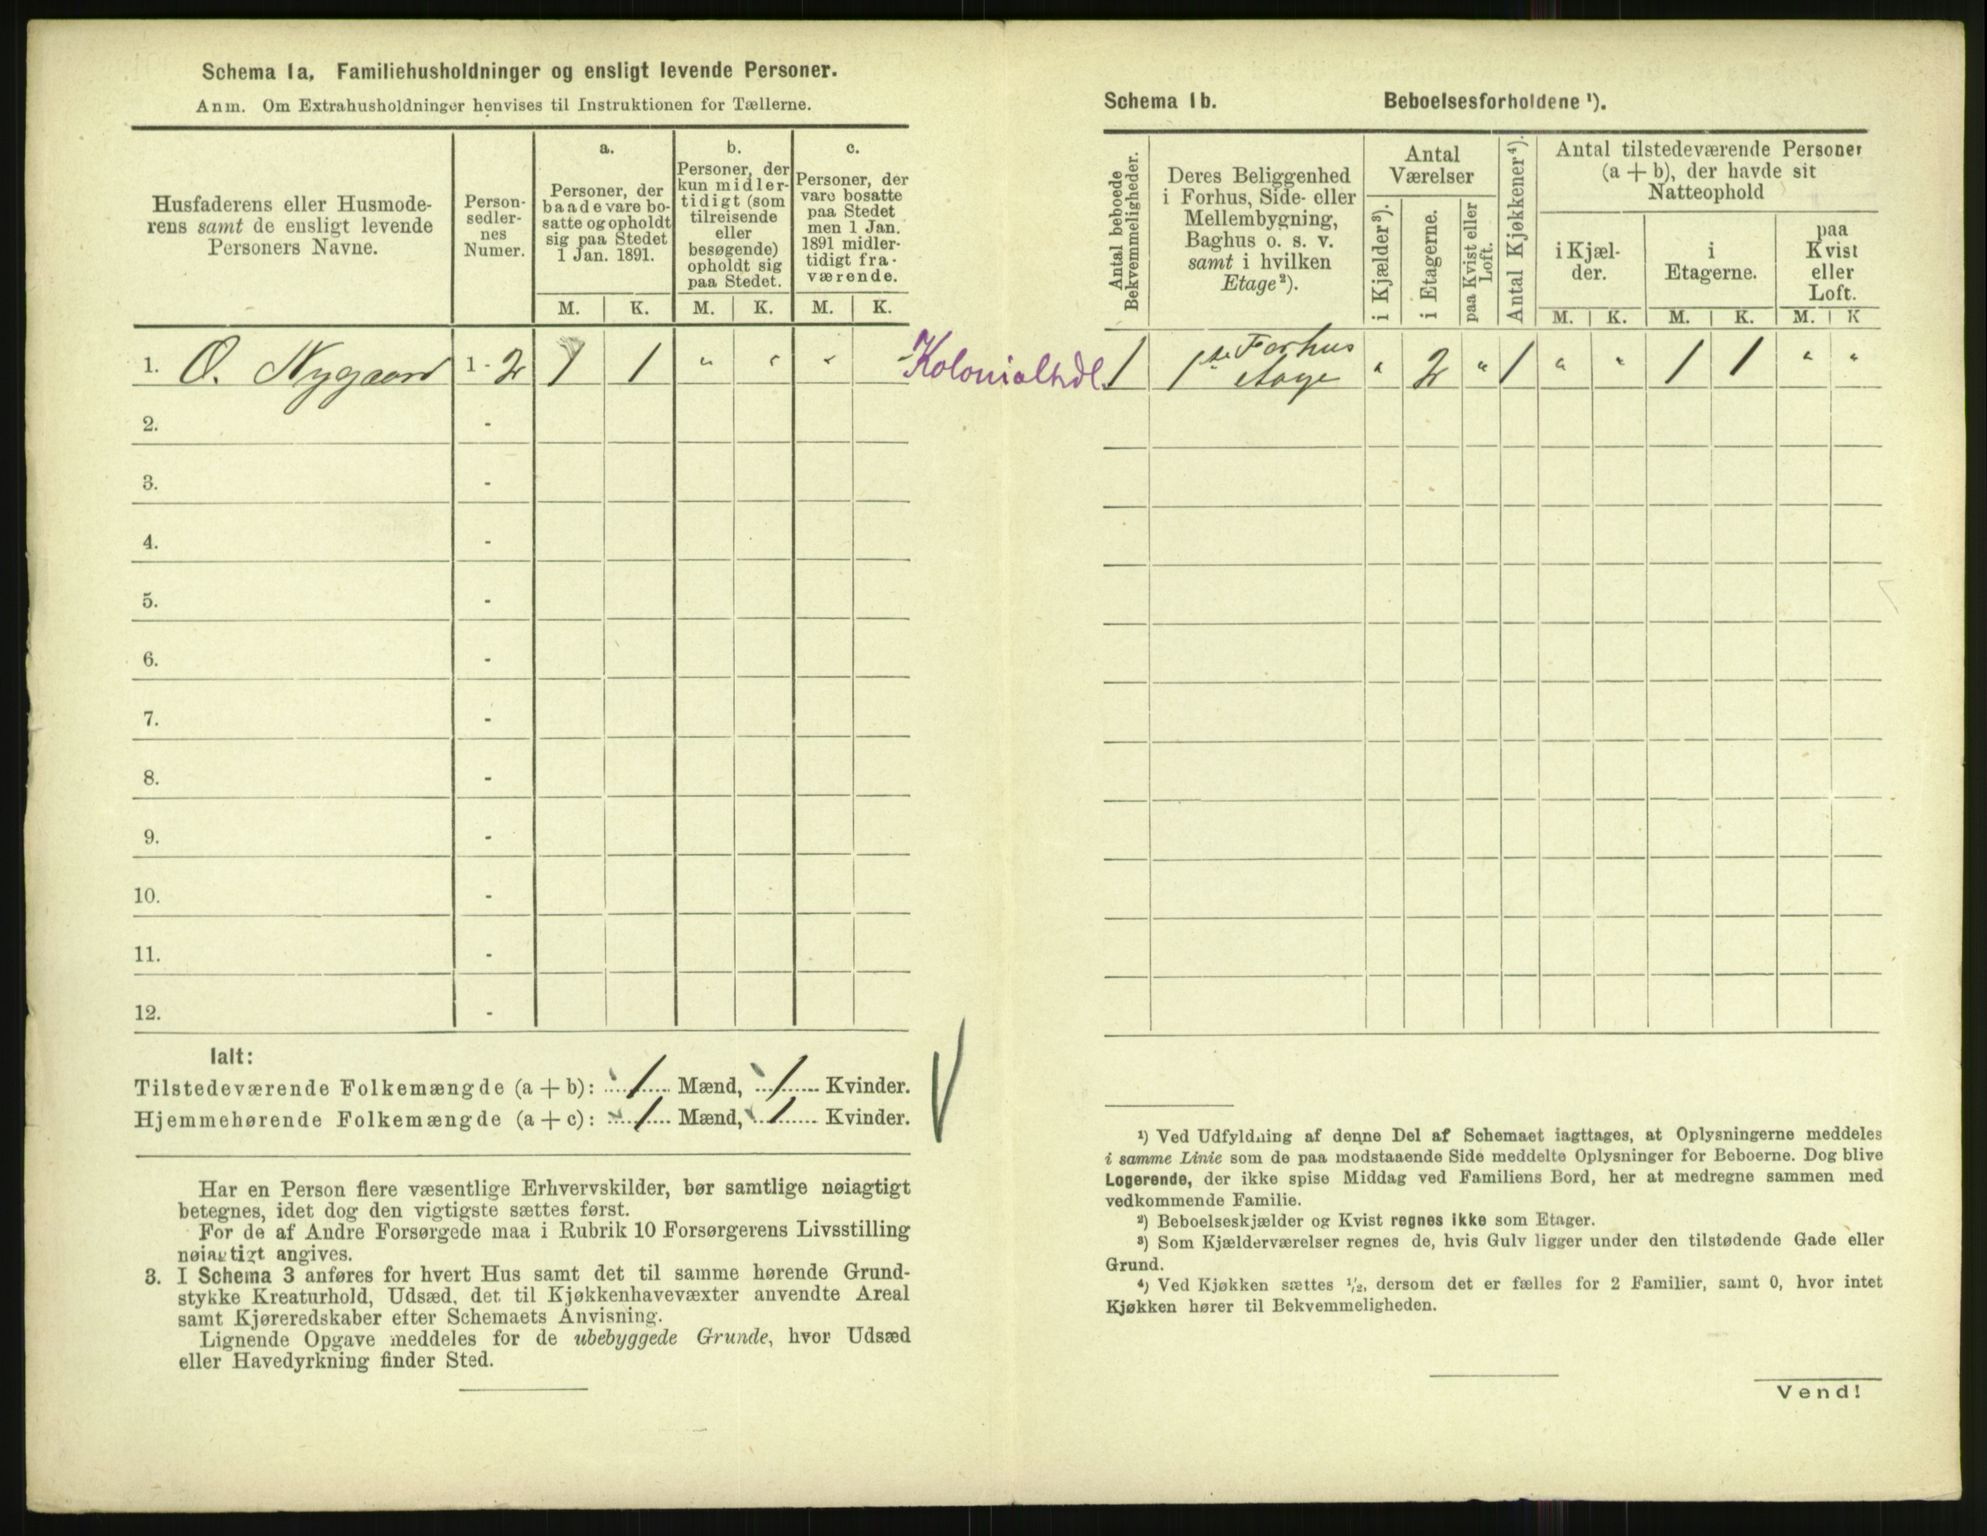 Schema 1a, Familiehusholdninger og ensligt levende Personer.
Anm. Om Extrahusholdninger henvises til Instruktionen for Tællerne.
Husfaderens eller Husmode-
rens samt de ensligt levende
Personers Navne.
Person-
sedler-
nes
Numer.
a.
Personer, der
baade vare bo-
satte og opholdt
sig paa Stedet
1 Jan. 1891.
b.
Personer, der
kun midler-
tidigt (som
tilreisende
eller
besøgende)
opholdt sig
paa Stedet.
c.
Personer, der
vare bosatte
paa Stedet
men 1 Jan.
1891 midler-
tidigt fra-
værende.
M. K. M. K. M. K.
1. O. Nygaard 1 - 2 1 1 " " "
Kolonialhdl.
2. -
3. -
4. -
5. -
6. -
7. -
8. -
9. -
10. -
11. -
12. -
Ialt:
Tilstedeværende Folkemængde (a + b): 1 Mænd, 1 Kvinder.
Hjemmehørende Folkemængde (a + c): 1 Mænd, 1 Kvinder.
Har en Person flere væsentlige Erhvervskilder, bør samtlige nøiagtigt
betegnes, idet dog den vigtigste sættes først.
For de af Andre Forsørgede maa i Rubrik 10 Forsørgerens Livsstilling
nøiagtigt angives.
3. I Schema 3 anføres for hvert Hus samt det til samme hørende Grund-
stykke Kreaturhold, Udsæd, det til Kjøkkenhavevæxter anvendte Areal
samt Kjøreredskaber efter Schemaets Anvisning.
Lignende Opgave meddeles for de ubebyggede Grunde, hvor Udsæd
eller Havedyrkning finder Sted.
Schema 1b. Beboelsesforholdene ¹).
Antal beboede
Bekvemmeligheder.
Deres Beliggenhed
i Forhus, Side- eller
Mellembygning,
Baghus o. s. v.
samt i hvilken
Etage²).
Antal
Værelser
i Kjælder³).
i Etagerne.
paa Kvist eller
Loft.
Antal Kjøkkener⁴).
Antal tilstedeværende Personer
(a + b), der havde sit
Natteophold
i Kjæl-
der.
i
Etagerne.
paa
Kvist
eller
Loft.
M. K. M. K. M. K
1 1ste Forhus
Etage " 2 " 1 " " 1 1 " "
¹) Ved Udfyldning af denne Del af Schemaet iagttages, at Oplysningerne meddeles
i samme Linie som de paa modstaaende Side meddelte Oplysninger for Beboerne. Dog blive
Logerende, der ikke spise Middag ved Familiens Bord, her at medregne sammen med
vedkommende Familie.
²) Beboelseskjælder og Kvist regnes ikke som Etager.
³) Som Kjælderværelser regnes de, hvis Gulv ligger under den tilstødende Gade eller
Grund.
⁴) Ved Kjøkken sættes ¹/₂, dersom det er fælles for 2 Familier, samt 0, hvor intet
Kjøkken hører til Bekvemmeligheden.
Vend!